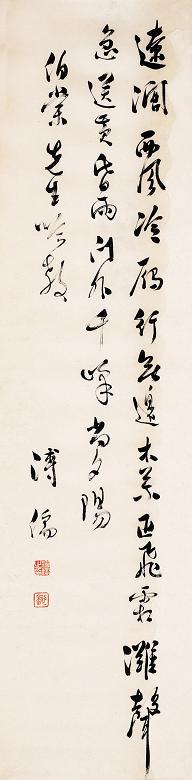 遠澗西風冷雁行無邊木葉正飛霜灘聲
急送黃昏雨門外千峰尚夕陽
伯榮先生吟教
溥儒